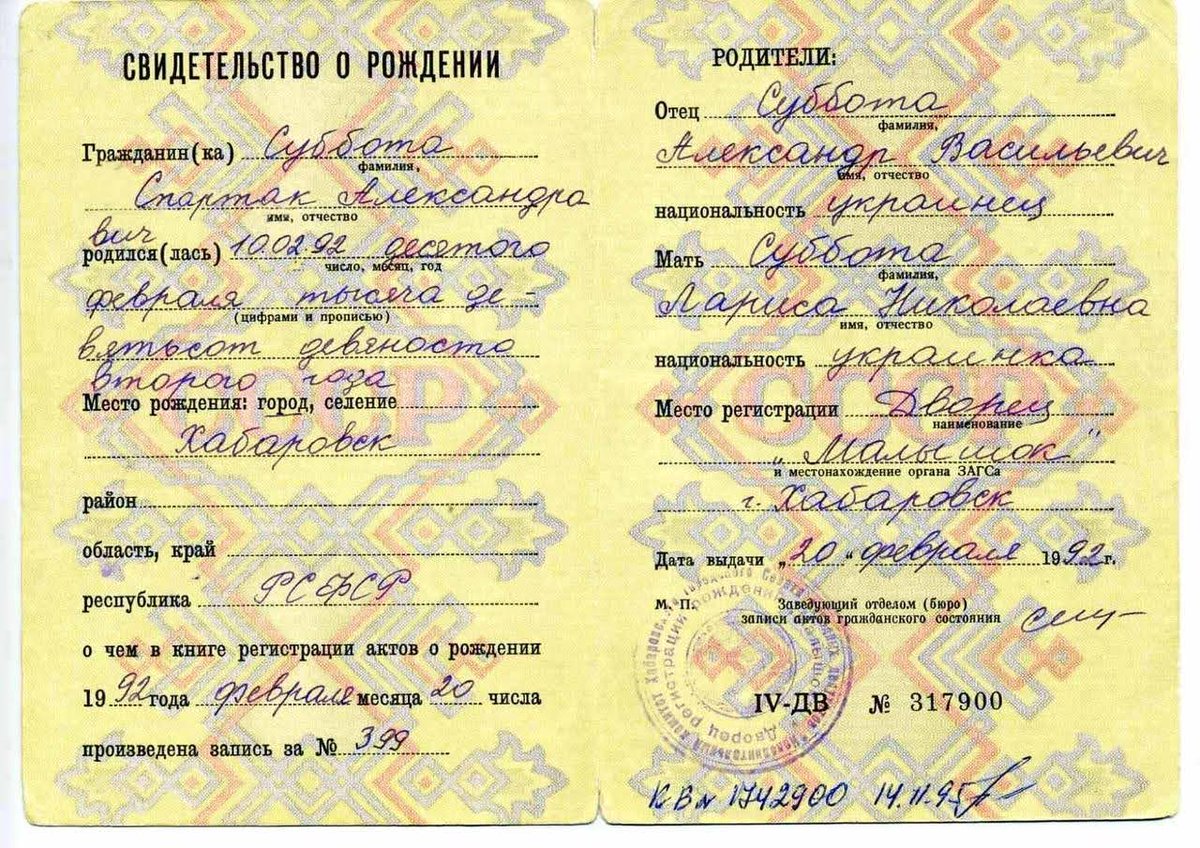 СВИДЕТЕЛЬСТВО О РОЖДЕНИИ
Гражданин(ка) Суббота
фамилия,
Спартак Александра
имя, отчество
вич
родился(лась) 10.02.92 десятого
число, месяц, год
февраля тысяча де-
(цифрами и прописью)
вятьсот девяносто
второго года
Место рождения: город, селение
Хабаровск
район
область, край
республика РСФСР
о чем в книге регистрации актов о рождении
1992 года февраля месяца 20 числа
произведена запись за № 399
РОДИТЕЛИ:
Отец Суббота
фамилия,
Александр Васильевич
имя, отчество
национальность украинец
Мать Суббота
фамилия,
Лариса Николаевна
имя, отчество
национальность украинка
Место регистрации Дворец
наименование
„Малышок"
и местонахождение органа ЗАГСа
г. Хабаровск
Дата выдачи „20" февраля 1992 г.
М. П. Заведующий отделом (бюро)
записи актов гражданского состояния
IV-ДВ № 317900
КВ № 1742900 14.11.95
СССР
СССР